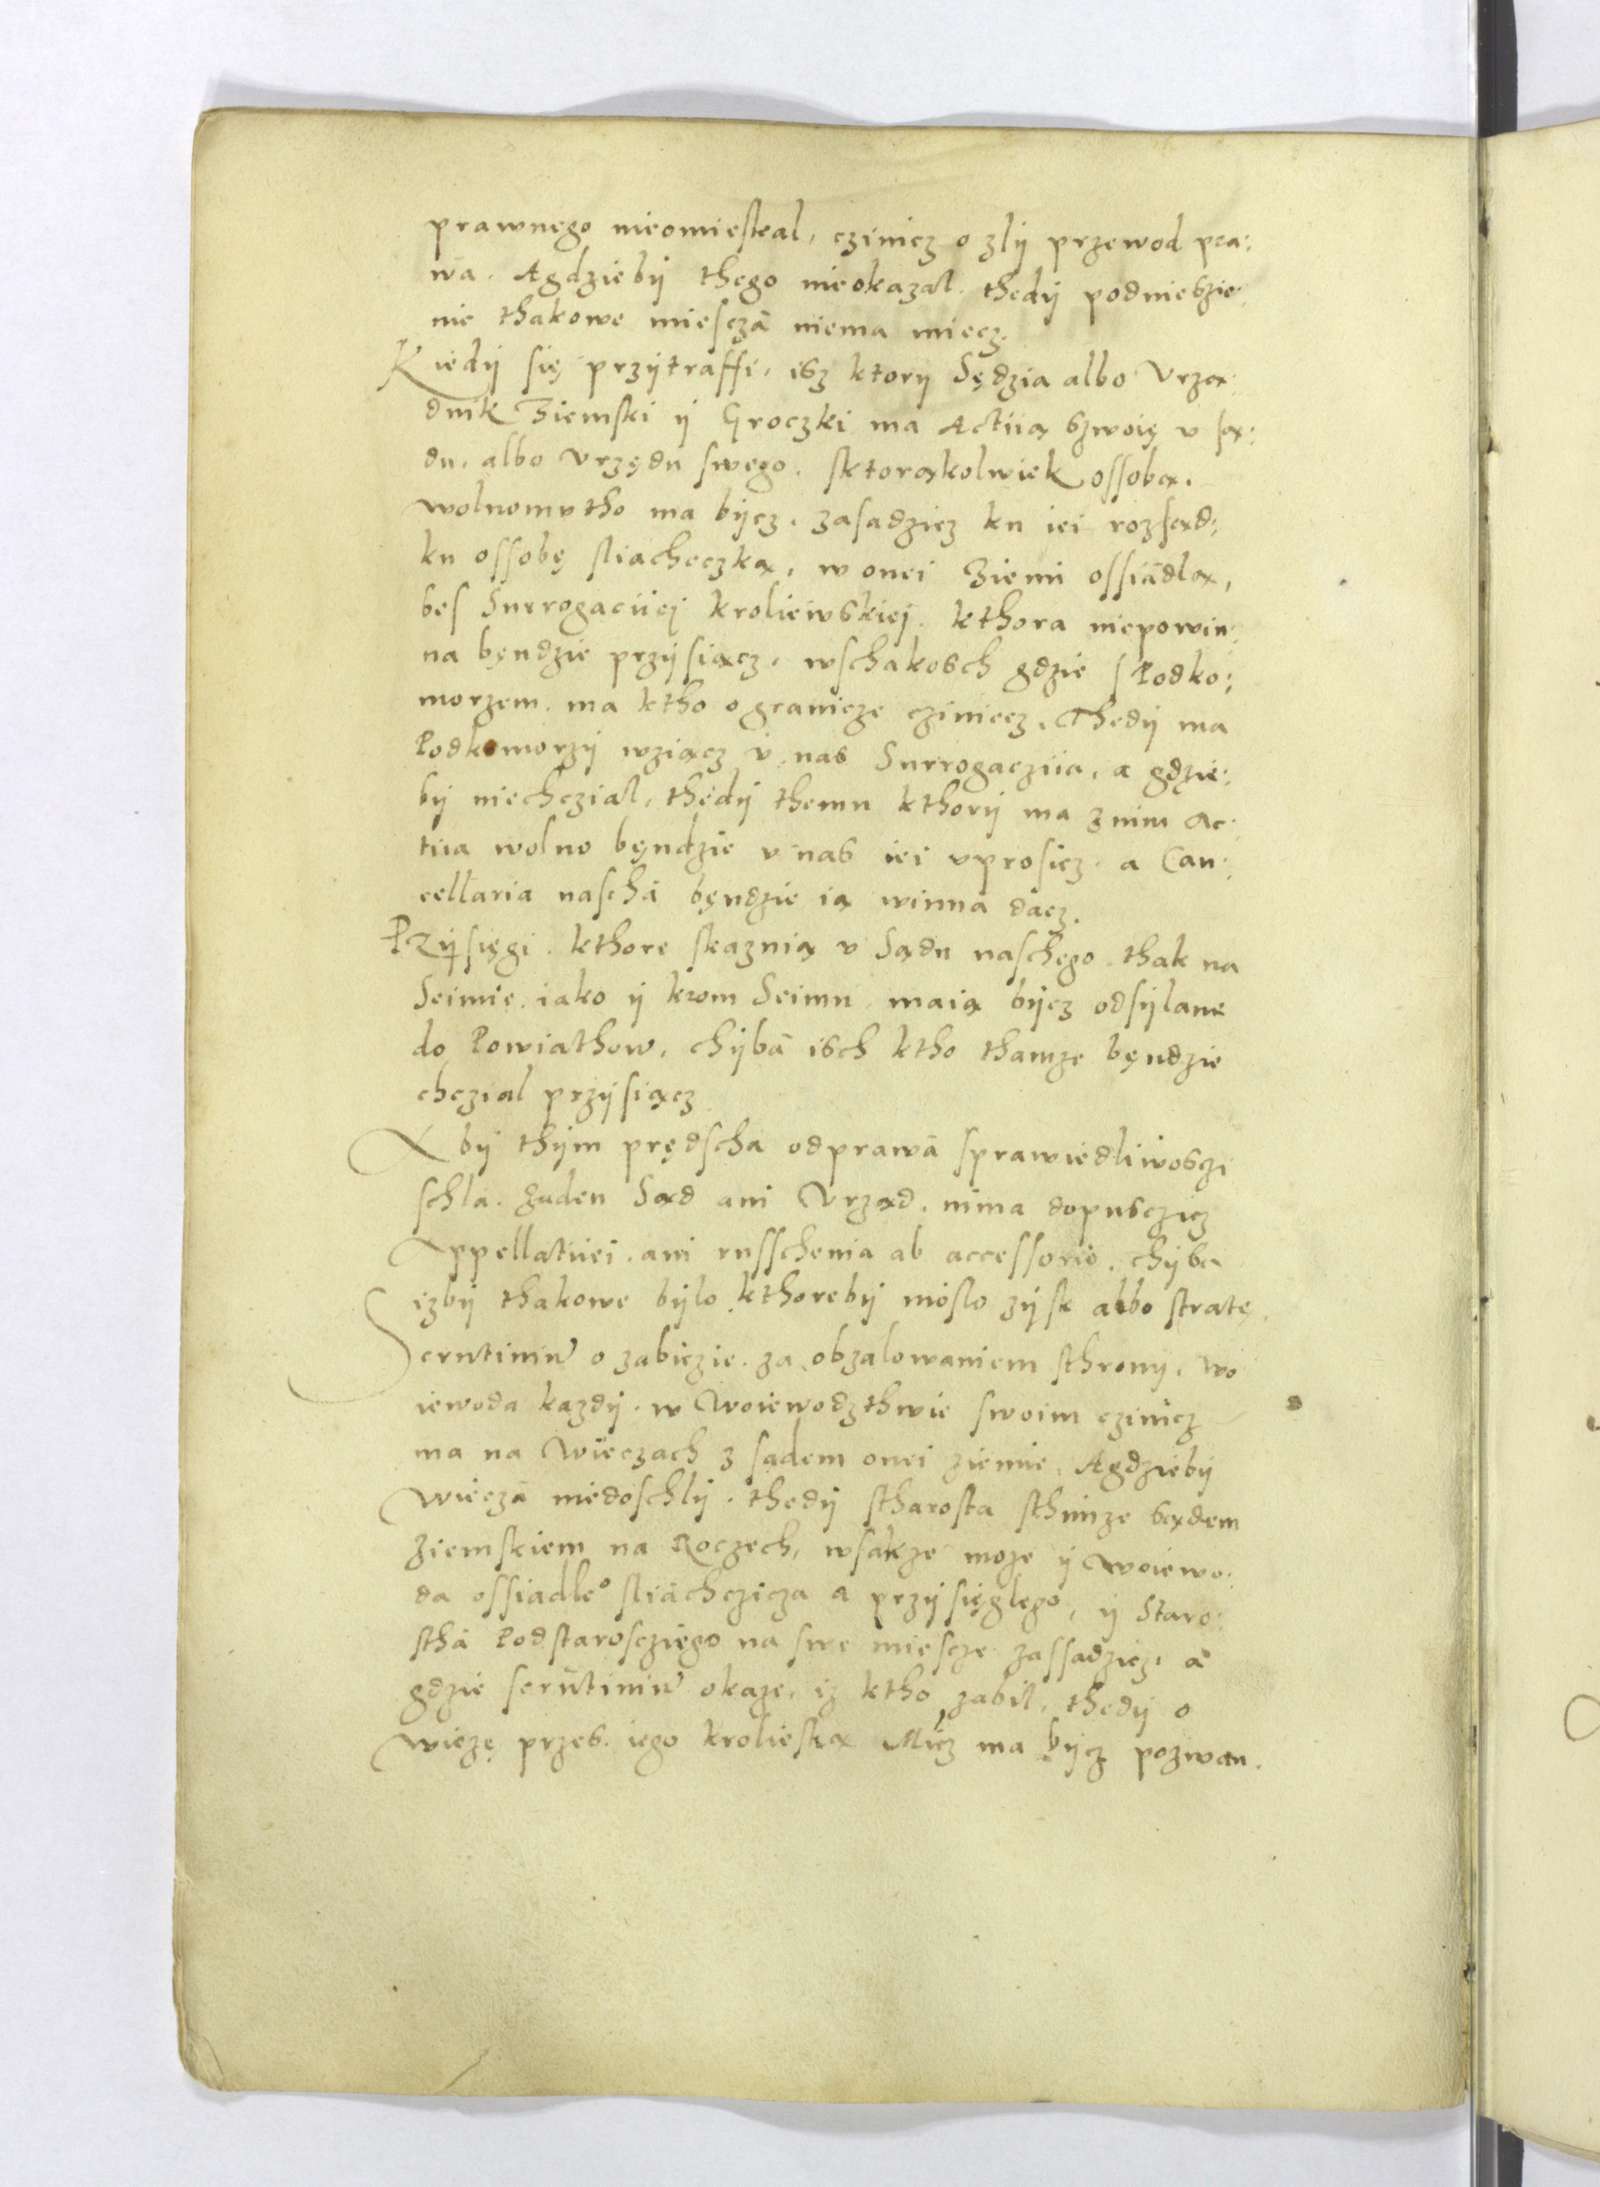 prawnego nieomieskal, czinicz o zly przewod pra:
wa. Agdzieby thego nieokazal. thedy podnieszie:
nie thakowe miesczā niema miecz.
Kiedy się przytraffi, isz ktory Sędzia albo Vrzą:
dnik Ziemski y Groczki ma Actiią szwoię v są:
du, albo Vrzędu swego. sktorąkolwiek ossobą.
wolnomu tho ma bycz. zasadzicz ku iei rozsąd:
ku ossobę sliacheczką, w onei Ziemi ossiādlą,
bes Surrogaciiej kroliewskiej. kthora niepowin:
na bęndzie przysiącz, wschakosch gdzie s Podko:
morzem. ma ktho o granicze czinicz. Thedy ma
Podkomorzy wziącz v nas Surrogacziia, a gdzie:
by niechczial, thedy themu kthory ma z nim Ac:
tiia wolno bęndzie v nas iei vprosicz. a Can:
cellaria naschā bęndzie ią winna dacz.
Przysięgi. kthore skaznią v Sądu naschego. thak na
Seimie. iako y krom Seimu. maią bycz odsylane
do Powiathow. chybā isch ktho thamze bęndzie
chczial przysiącz
Aby thym prędscha odprawā sprawiedliwosczi
schla. Zaden Sąd ani Vrząd. nima dopusczicz
Appellatiiei. ani russchenia ab accessorio. chyba
izby thakowe bylo kthoreby nioslo zysk albo stratę.
Scrutiniū o zabiczie. za obzalowaniem sthrony. Wo
iewoda kazdy. w Woiewodzthwie swoim czinicz
ma na Wieczach z sadem onei ziemie. Agdzieby
Wieczā niedoschly. thedy stharosta sthimze sądem
Ziemskiem na Roczech, wsakze moze y Woiewo:
da ossiadle° sliāchczicza a przysięglego, y Staro:
sthā Podstarosciego na swe miescze zassadzicz. a
gdzie scrutiniū okaze, iz ktho zabil. thedy o
wieżę przes. iego krolieską Mścz ma bycz pozwan.